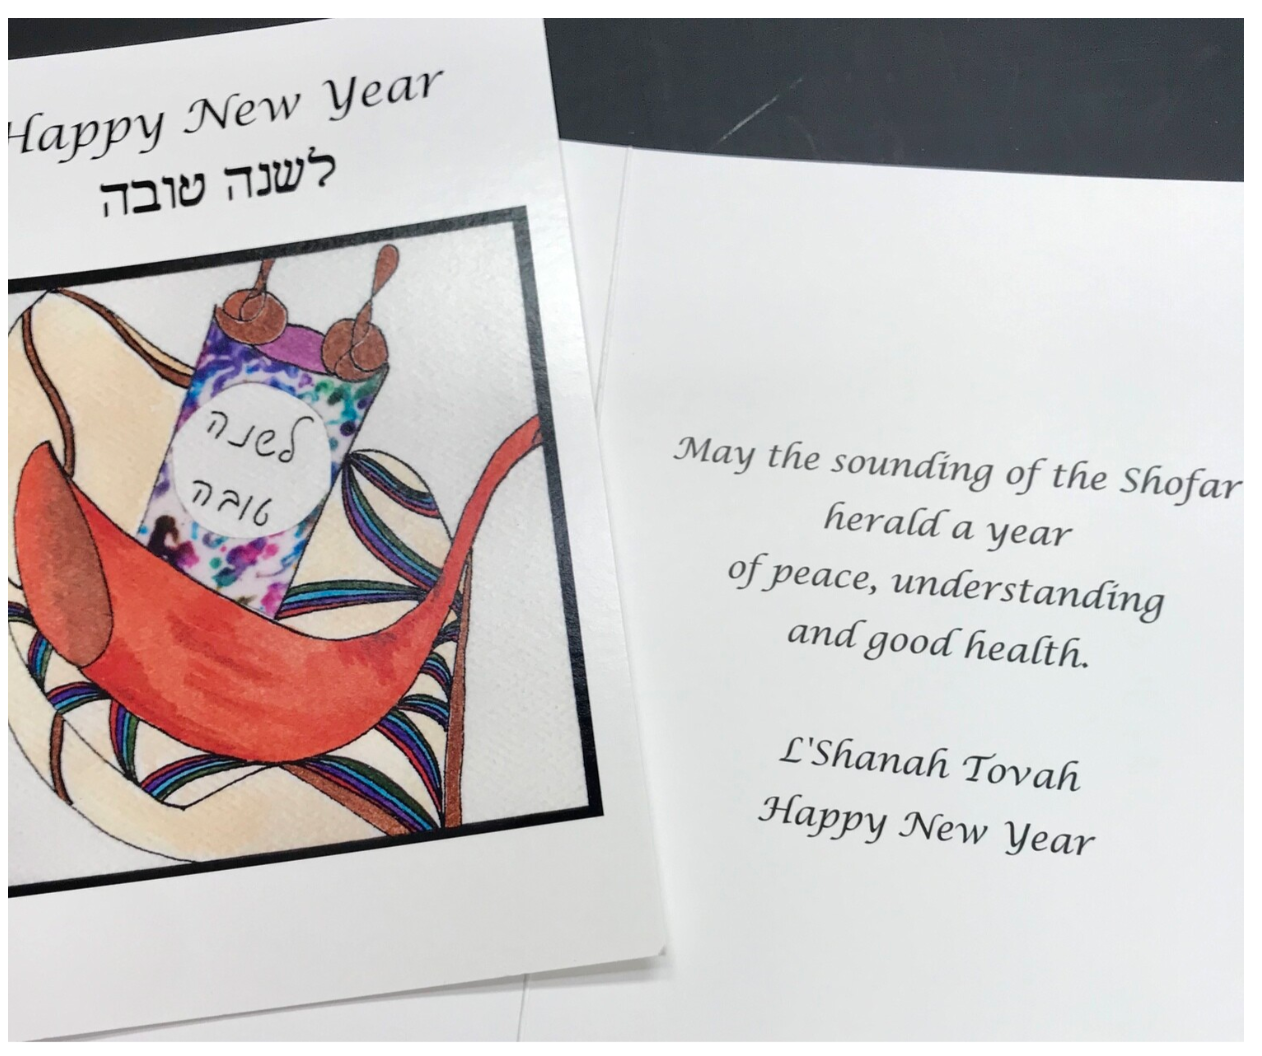 Happy New Year
לשנה טובה
לשנה
טובה
May the sounding of the Shofar
herald a year
of peace, understanding
and good health.
L'Shanah Tovah
Happy New Year